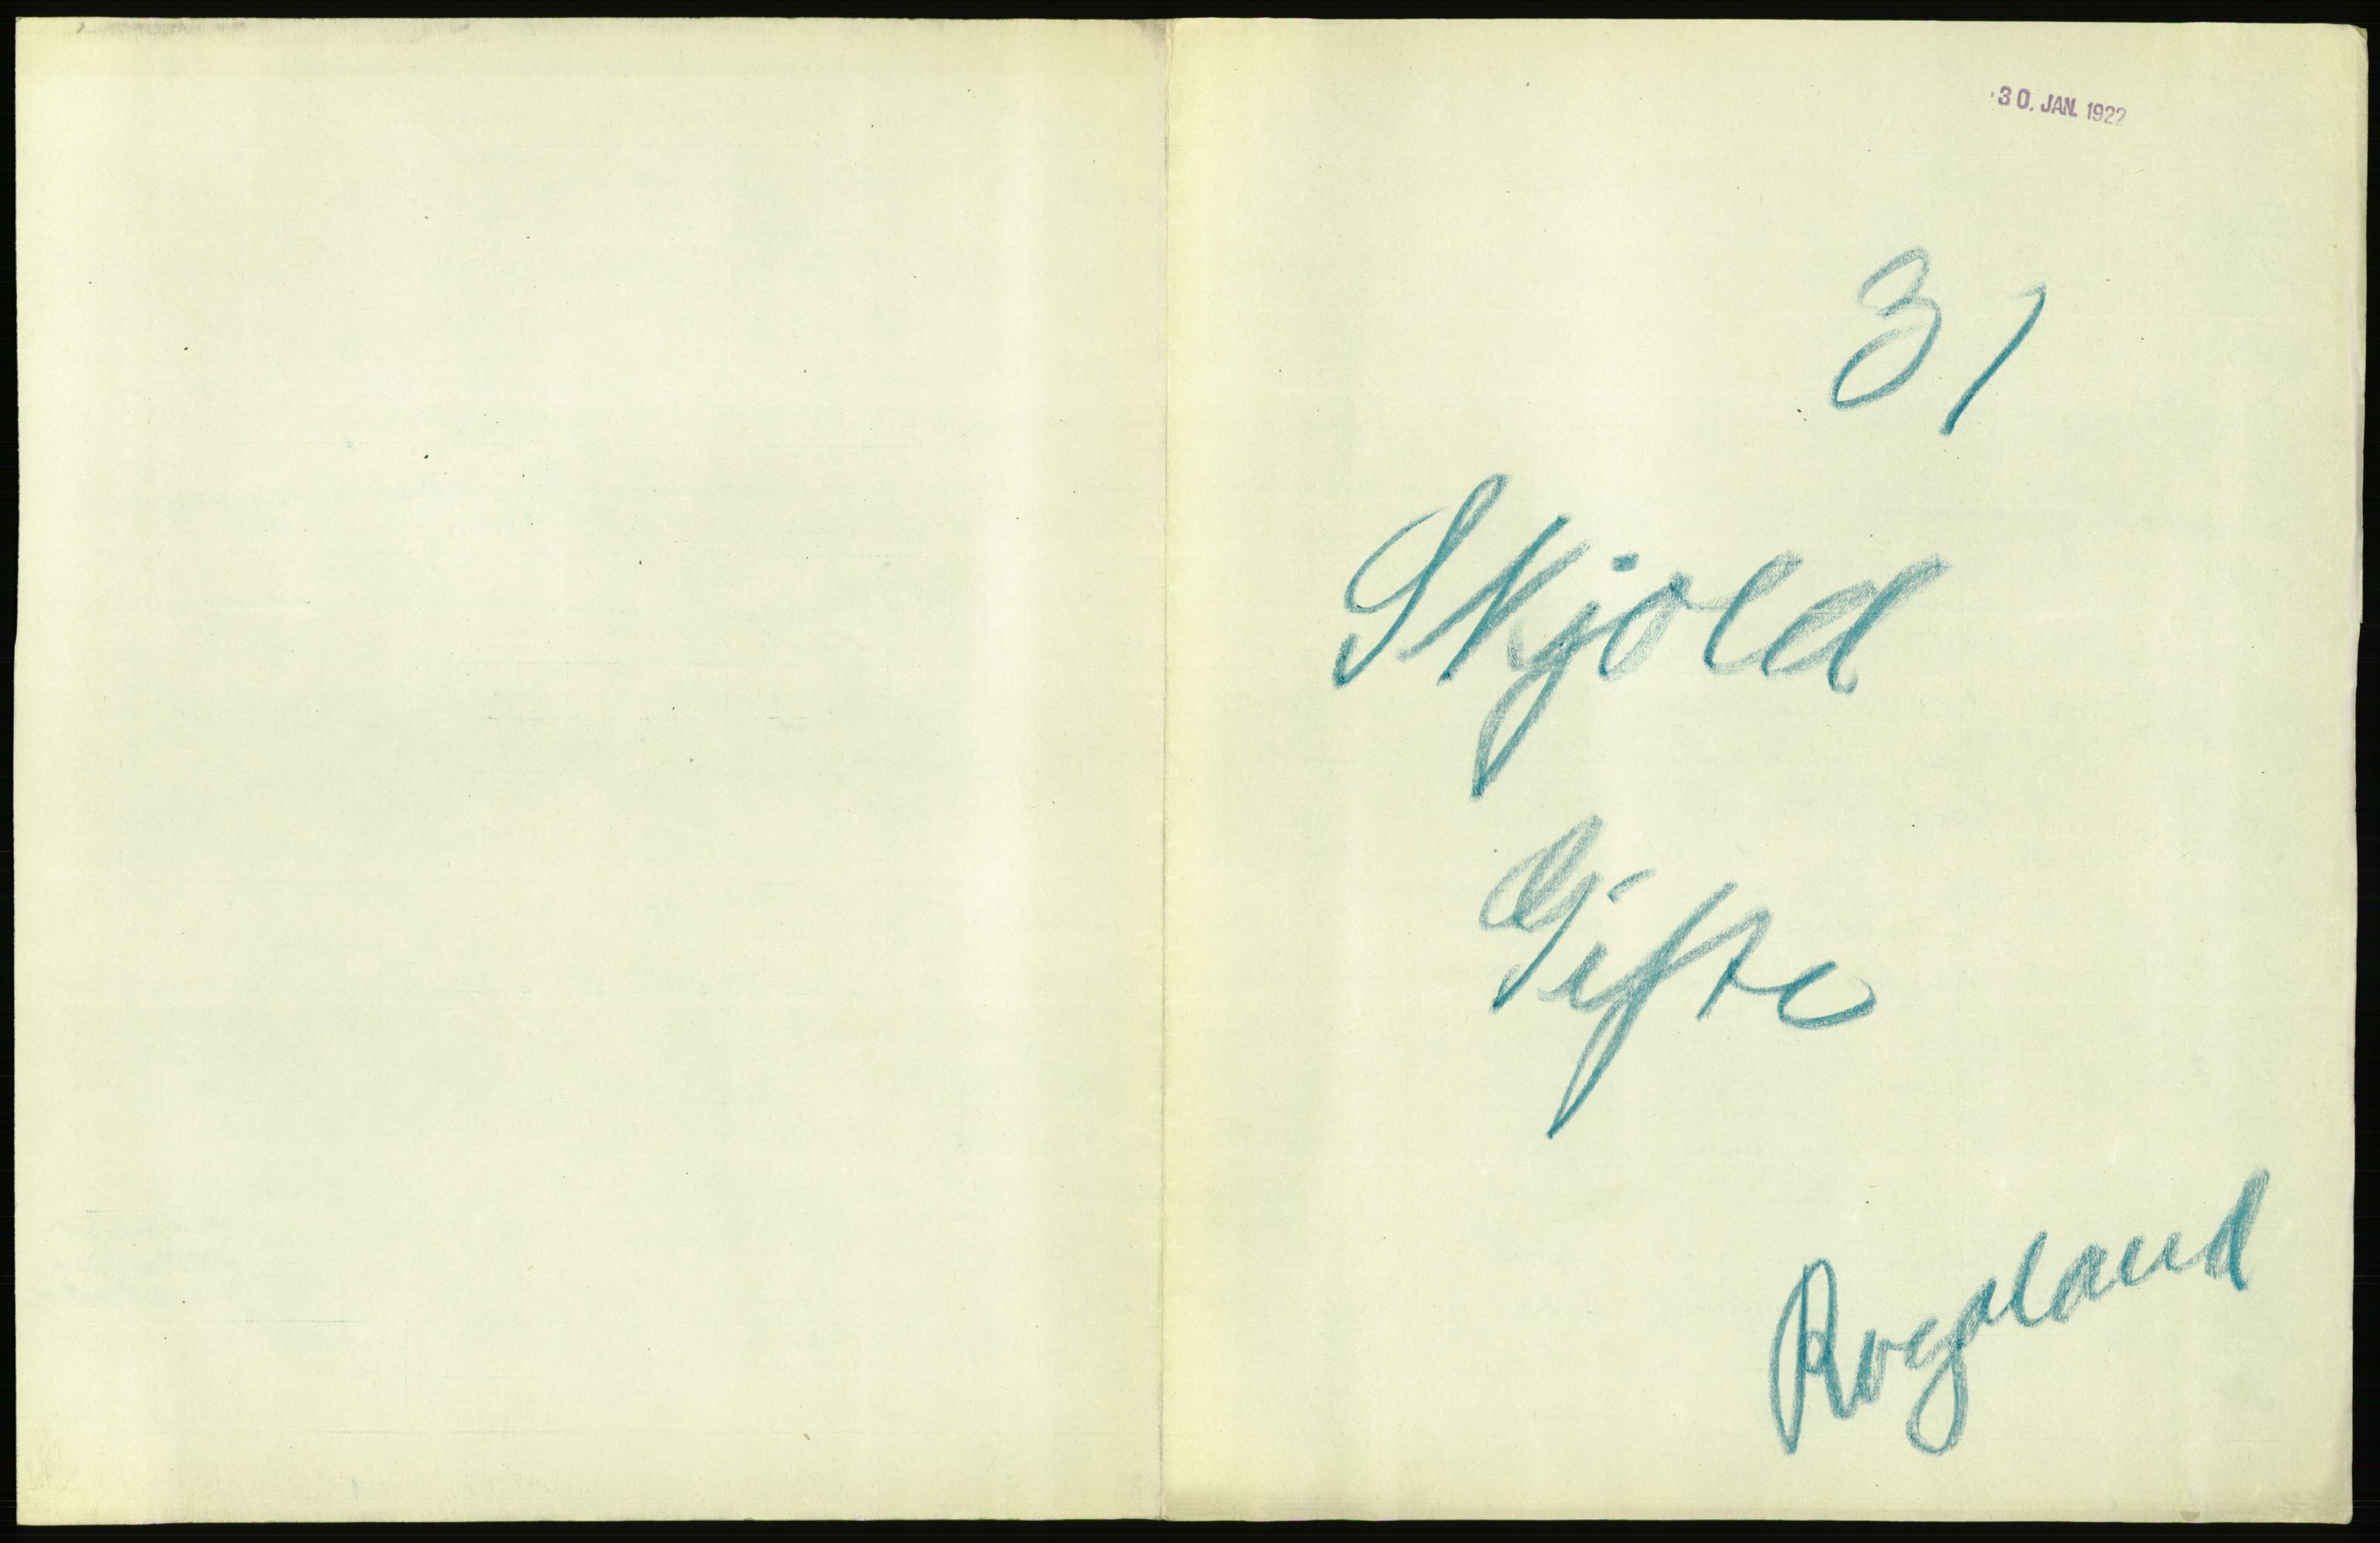 30. JAN. 1922
31
Skjold
Gifte
Rogaland